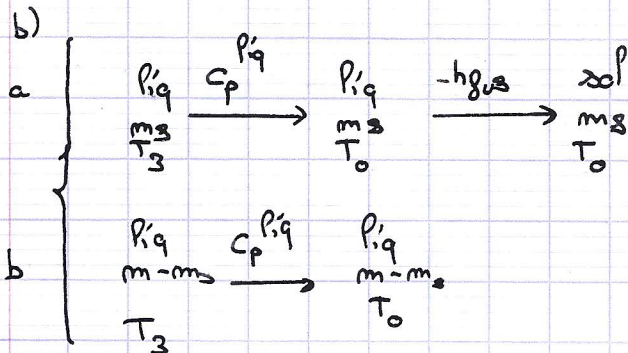 b)
a liq m_s T_3 → C_p^liq → liq m_s T_0 → -h_fus → sol m_s T_0
b liq m-m_s T_3 → C_p^liq → liq m-m_s T_0